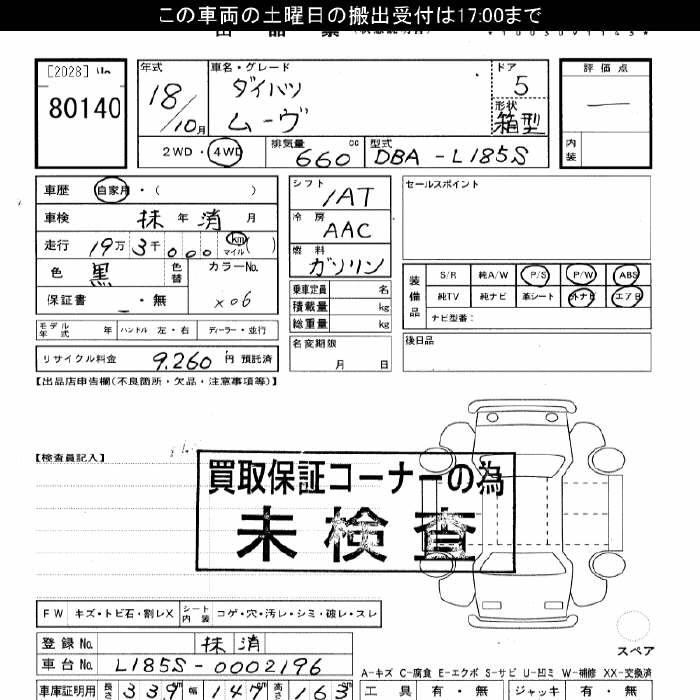 この車両の土曜日の搬出受付は17:00まで
[2028]
80140
年式
18/10月
車名・グレード
ダイハツ
ムーヴ
ドア
5
形状
箱型
評価点
内装
2WD・4WD
排気量
660 cc
型式
DBA-L185S
車歴 自家用・( )
車検 抹 年 消 月
走行 19万3千000 km マイル( )
色 黒 色替 カラーNo.
X06
保証書 ・無
モデル年式 年 ハンドル 左・右 ディーラー・並行
リサイクル料金 9.260円 預託済
シフト
IAT
冷房
AAC
燃料
ガソリン
乗車定員 名
積載量 kg
総重量 kg
名変期限
月 日
セールスポイント
装備品
S/R 純A/W P/S P/W ABS
純TV 純ナビ 革シート 外ナビ エアB
ナビ型番:
後日品
【出品店申告欄(不良箇所・欠品・注意事項等)】
【検査員記入】
買取保証コーナーの為
未検査
FW キズ・トビ石・割レX シート内装 コゲ・穴・汚レ・シミ・破レ・スレ
登録No. 抹消
車台No. L185S-0002196
車庫証明用 長さ 339 幅 147 高さ 163
スペア
A-キズ C-腐食 E-エクボ S-サビ U-凹ミ W-補修 XX-交換済
工具 有・無 ジャッキ 有・無